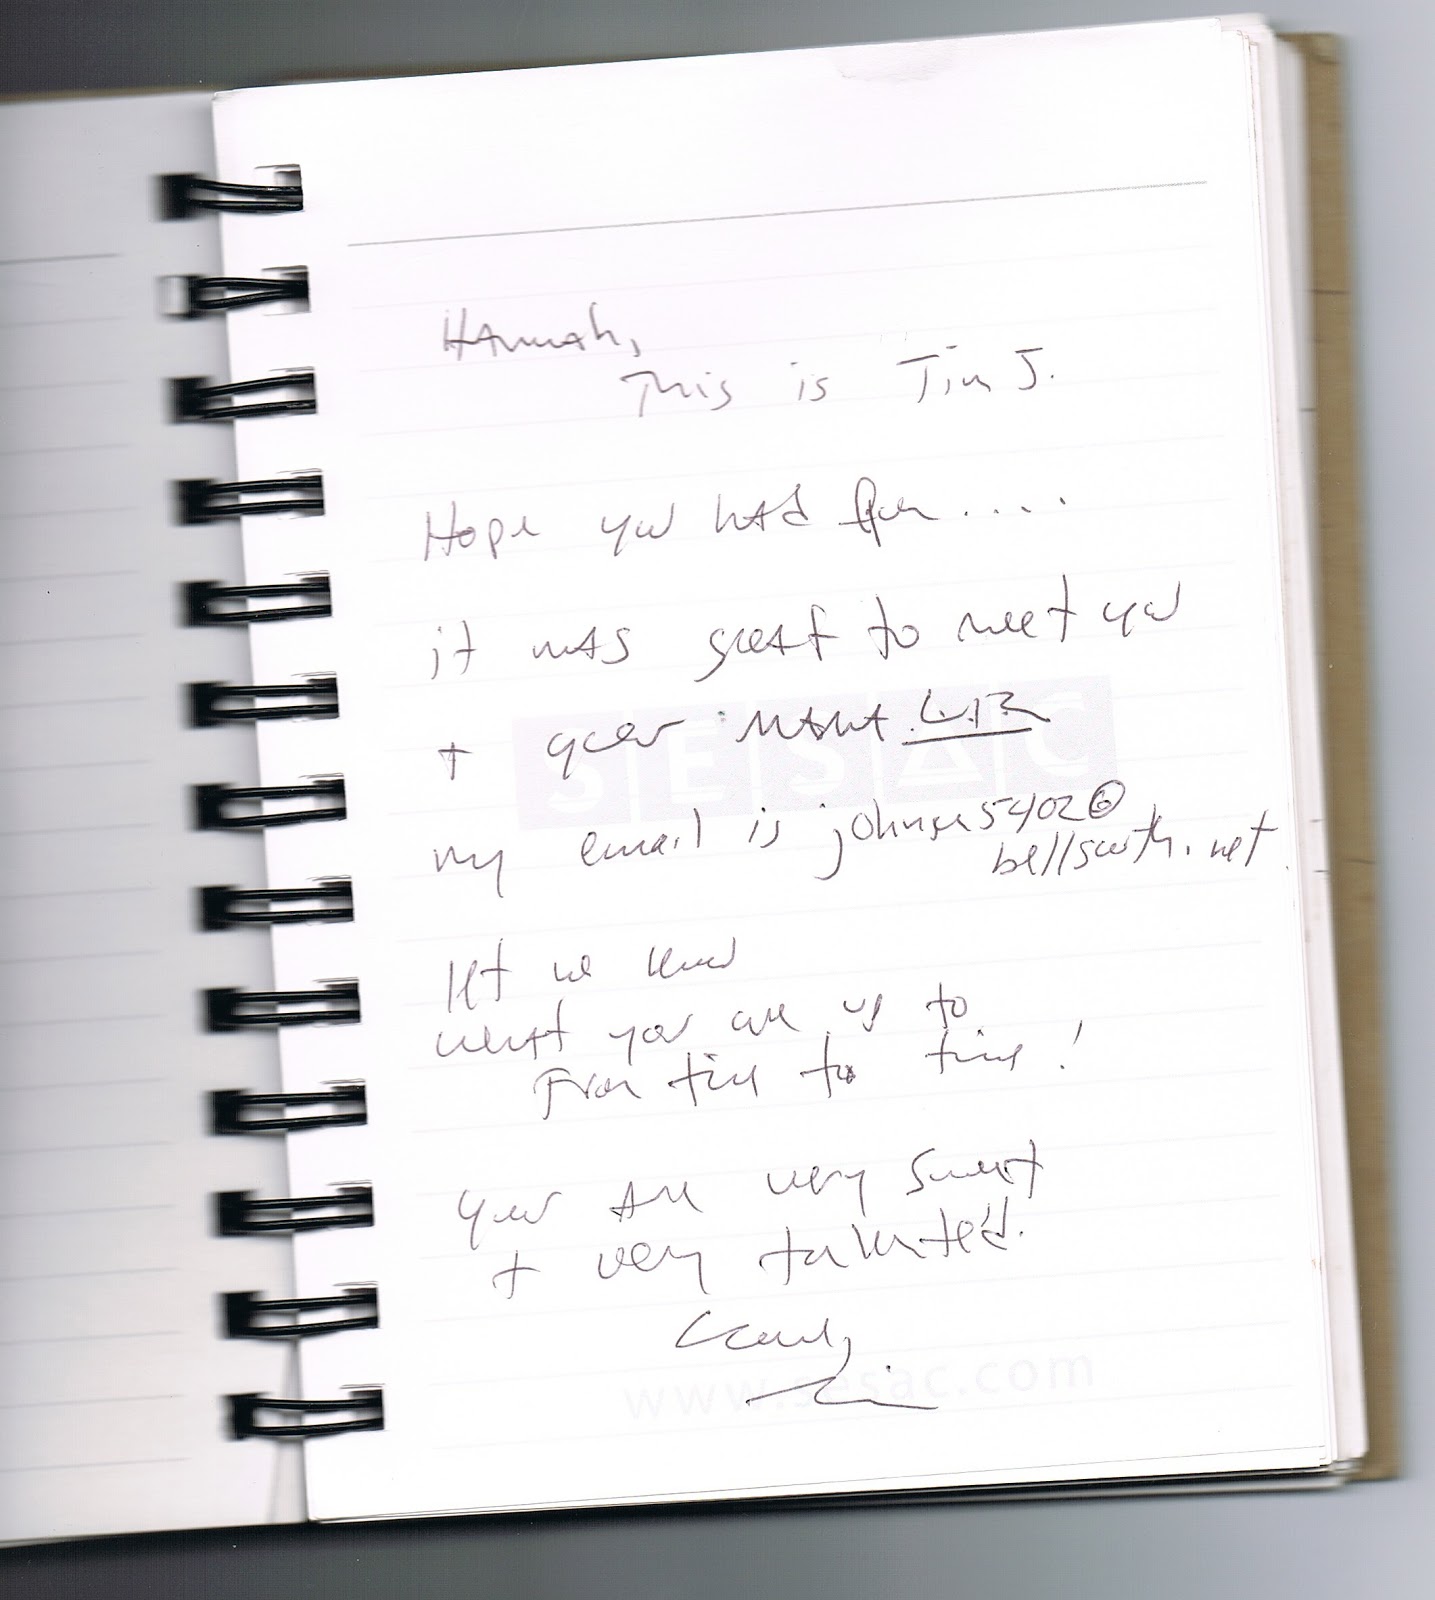 Hannah,
This is Tim J.
Hope you had fun.....
it was great to meet you
SESAC
+ your mama LIZ
my email is johnson5402@
bellsouth.net
let me know
what you are up to
From time to time!
you are very sweet
+ very talented.
www.sesac.com